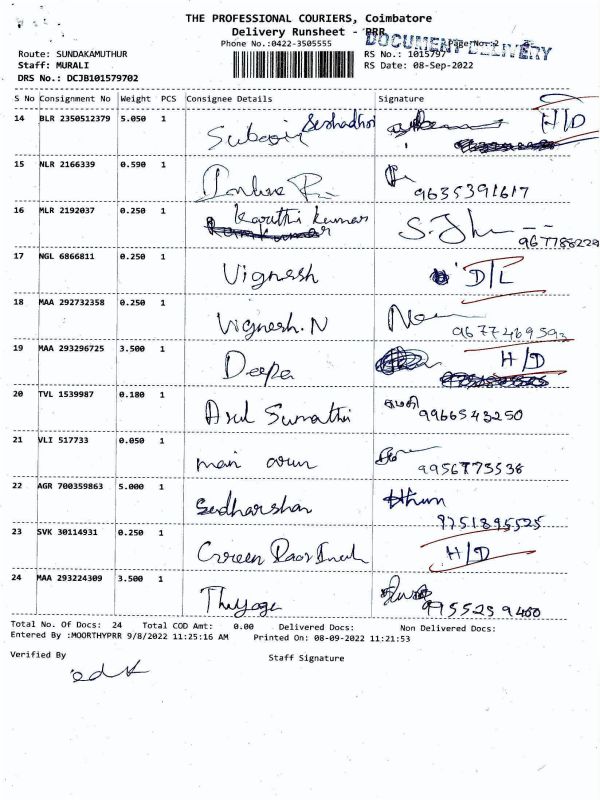 THE PROFESSIONAL COURIERS, Coimbatore
Delivery Runsheet - PRR
Phone No.:0422-3505555
Page No.: 2
DOCUMENT DELIVERY
Route: SUNDAKAMUTHUR
RS No.: 1015797
Staff: MURALI
RS Date: 08-Sep-2022
DRS No.: DCJB101579702
S No Consignment No Weight PCS Consignee Details Signature
14 BLR 2350512379 5.050 1 H/D
15 NLR 2166339 0.590 1
9635391617
16 MLR 2192037 0.250 1 Karuthi kumar
967788229
17 NGL 6866811 0.250 1 Vignesh D/L
18 MAA 292732358 0.250 1 Vignesh.N
9677469593
19 MAA 293296725 3.500 1 Deepa H/D
20 TVL 1539987 0.180 1 Arul Sumathi சுமதி 9966543250
21 VLI 517733 0.050 1 mani arun
9956773538
22 AGR 700359863 5.000 1 Sudharshan
9751895525
23 SVK 30114931 0.250 1 Green H/D
24 MAA 293224309 3.500 1 Thiyagu
9955259400
Total No. Of Docs: 24 Total COD Amt: 0.00 Delivered Docs: Non Delivered Docs:
Entered By :MOORTHYPRR 9/8/2022 11:25:16 AM Printed On: 08-09-2022 11:21:53
Verified By Staff Signature